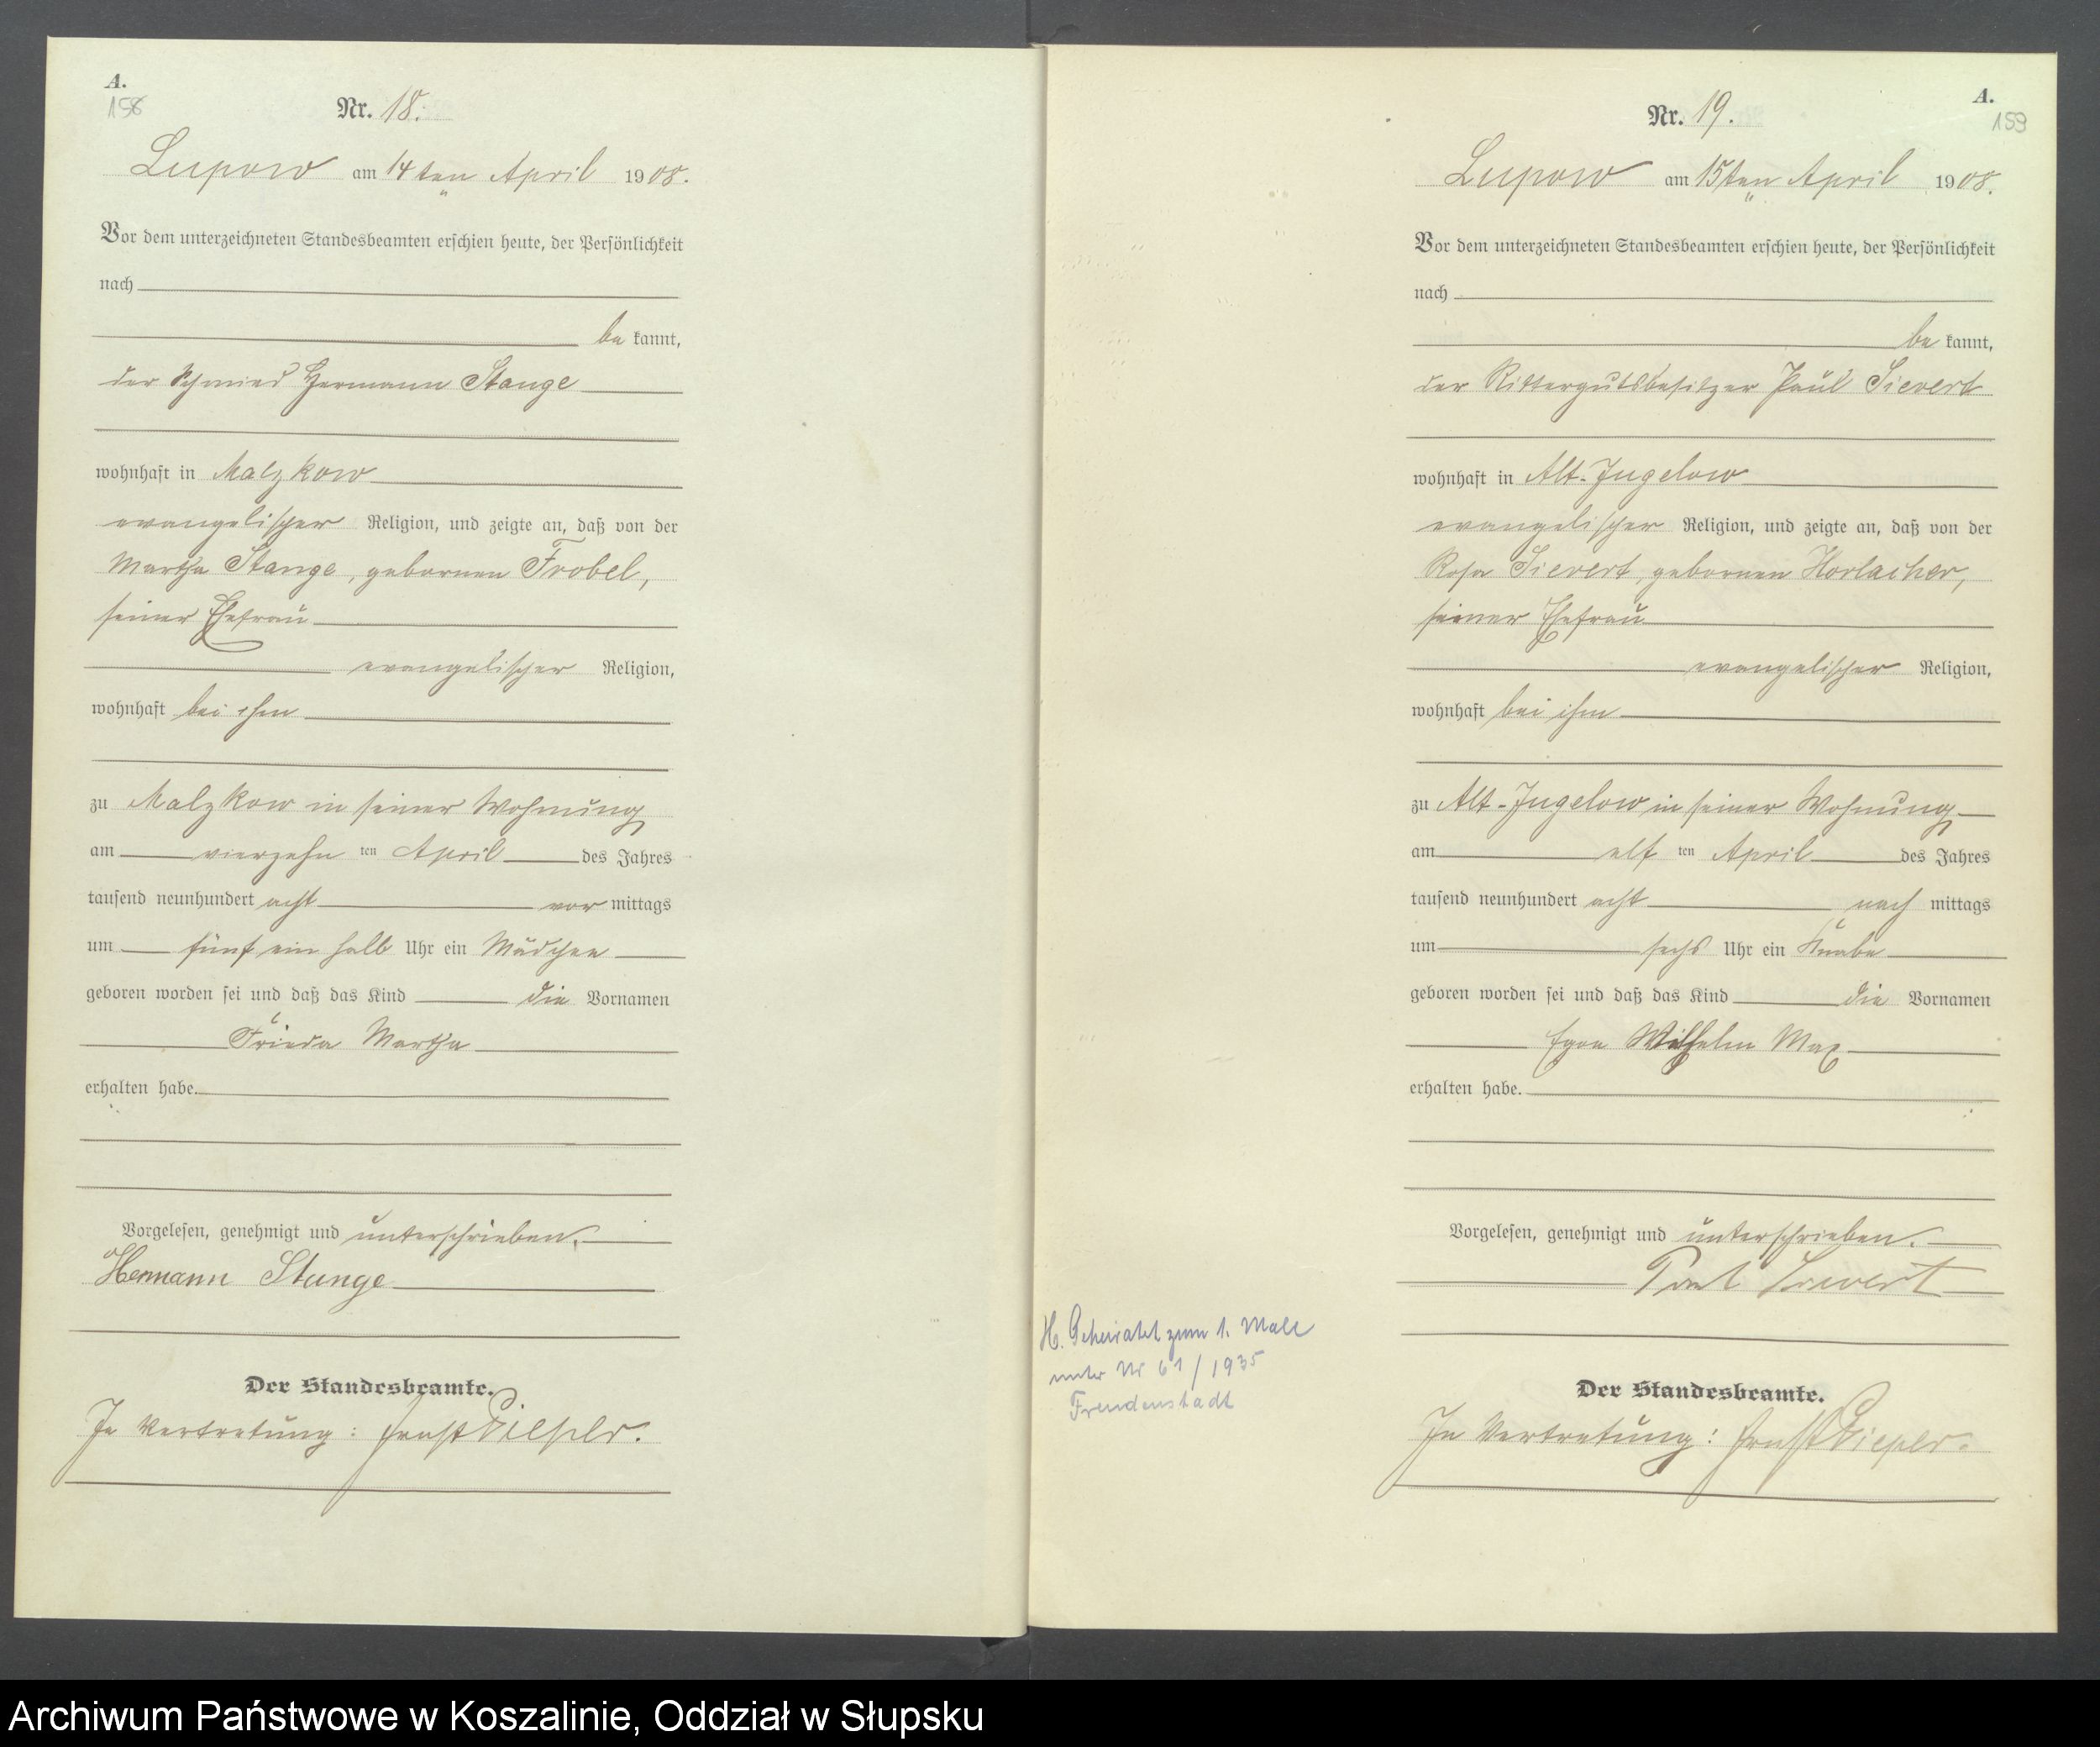 A.
158
Nr. 18.
Lupow am 14ten April 1908.
Vor dem unterzeichneten Standesbeamten erschien heute, der Persönlichkeit
nach
be kannt,
der Schmied Hermann Stange
wohnhaft in Malzkow
evangelischer Religion, und zeigte an, daß von der
Martha Stange, geborenen Frobel,
seiner Ehefrau
evangelischer Religion,
wohnhaft bei ihm
zu Malzkow in seiner Wohnung
am vierzehn ten April des Jahres
tausend neunhundert acht vor mittags
um fünf ein halb Uhr ein Mädchen
geboren worden sei und daß das Kind die Vornamen
Frieda Martha
erhalten habe.
Vorgelesen, genehmigt und unterschrieben.
Hermann Stange
Der Standesbeamte.
In Vertretung: Ernst Pieper.
A.
159
Nr. 19.
Lupow am 15ten April 1908.
Vor dem unterzeichneten Standesbeamten erschien heute, der Persönlichkeit
nach
be kannt,
der Rittergutsbesitzer Paul Sievert
wohnhaft in Alt-Jugelow
evangelischer Religion, und zeigte an, daß von der
Rosa Sievert, geborenen Horlacher,
seiner Ehefrau
evangelischer Religion,
wohnhaft bei ihm
zu Alt-Jugelow in seiner Wohnung
am elf ten April des Jahres
tausend neunhundert acht nach mittags
um sechs Uhr ein Knabe
geboren worden sei und daß das Kind die Vornamen
Egon Wilhelm Max
erhalten habe.
Vorgelesen, genehmigt und unterschrieben.
Paul Sievert
H. Geheiratet zum 1. Male
unter Nr 61/1935
Freudenstadt
Der Standesbeamte.
In Vertretung: Ernst Pieper.
Archiwum Państwowe w Koszalinie, Oddział w Słupsku